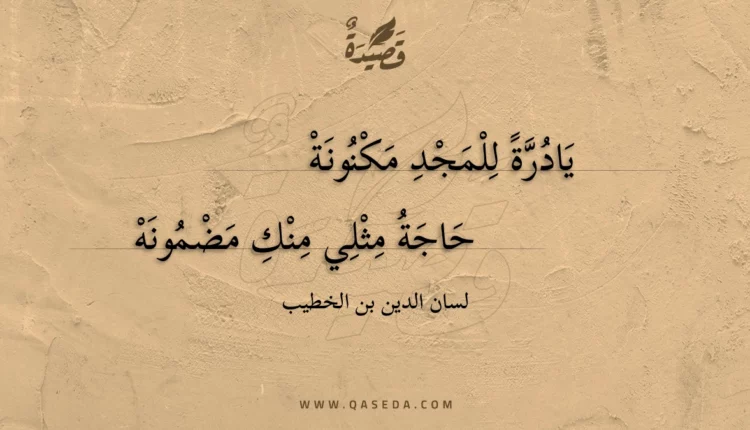 قَصِيدَةٌ
يَادُرَّةً لِلْمَجْدِ مَكْنُونَةْ
حَاجَةُ مِثْلِي مِنْكِ مَضْمُونَهْ
لسان الدين بن الخطيب
WWW.QASEDA.COM